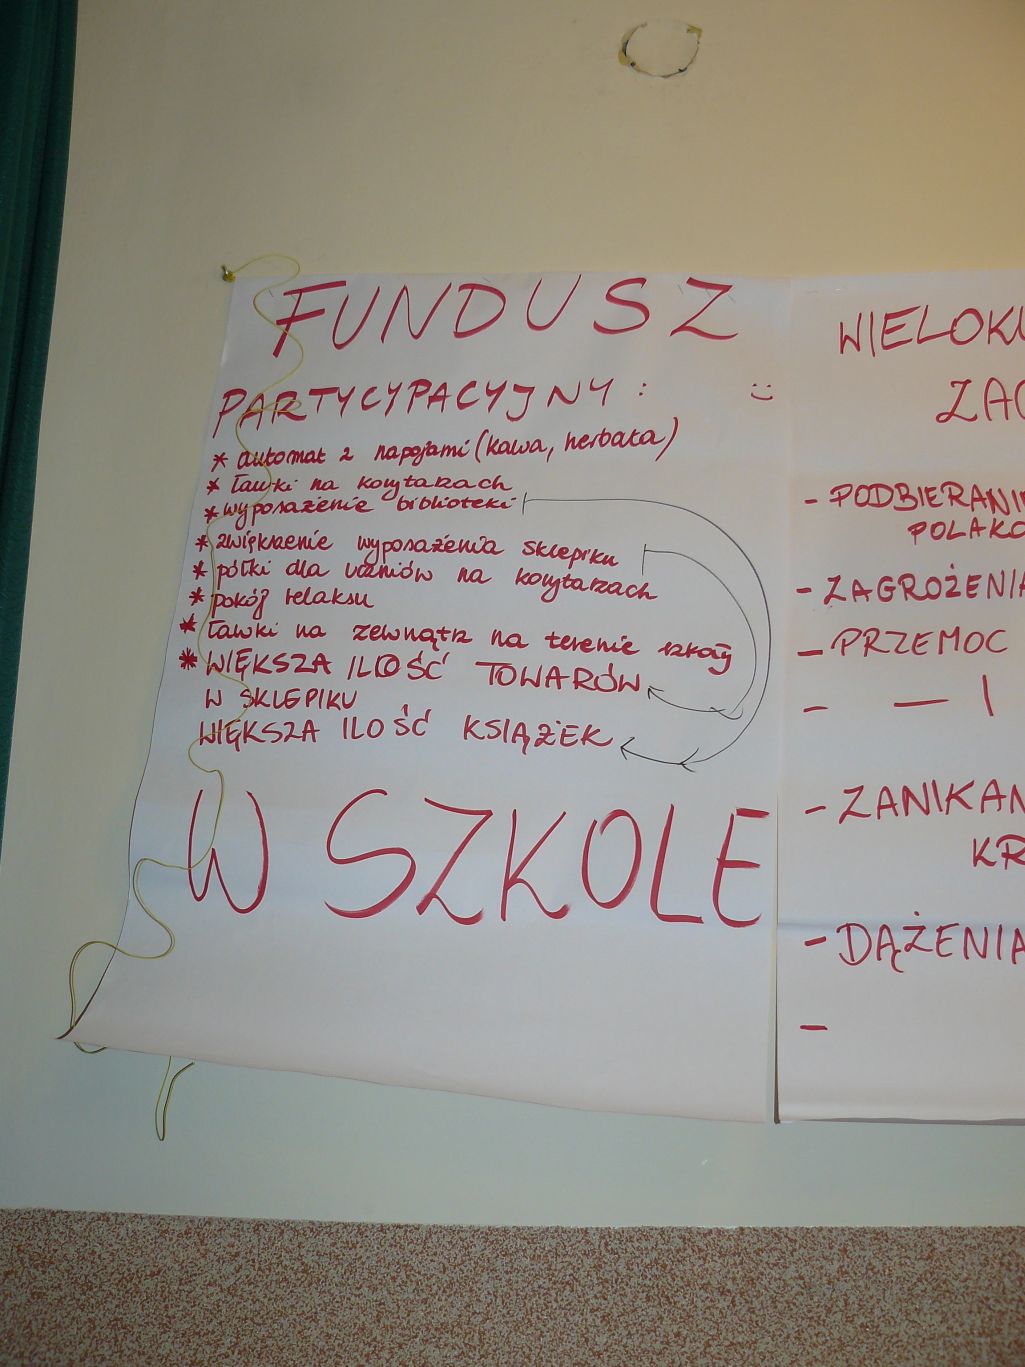 FUNDUSZ
PARTYCYPACYJNY : :)
* automat z napojami (kawa, herbata)
* ławki na korytarzach
* wyposażenie biblioteki
* zwiększenie wyposażenia sklepiku
* półki dla uczniów na korytarzach
* pokój relaksu
* ławki na zewnątrz na terenie szkoły
* WIĘKSZA ILOŚĆ TOWARÓW
W SKLEPIKU
WIĘKSZA ILOŚĆ KSIĄŻEK
W SZKOLE
WIELOKU
ZAG
- PODBIERANIE
POLAKO
- ZAGROŻENIA
- PRZEMOC
- — |
- ZANIKAN
KR
- DĄŻENIA
-